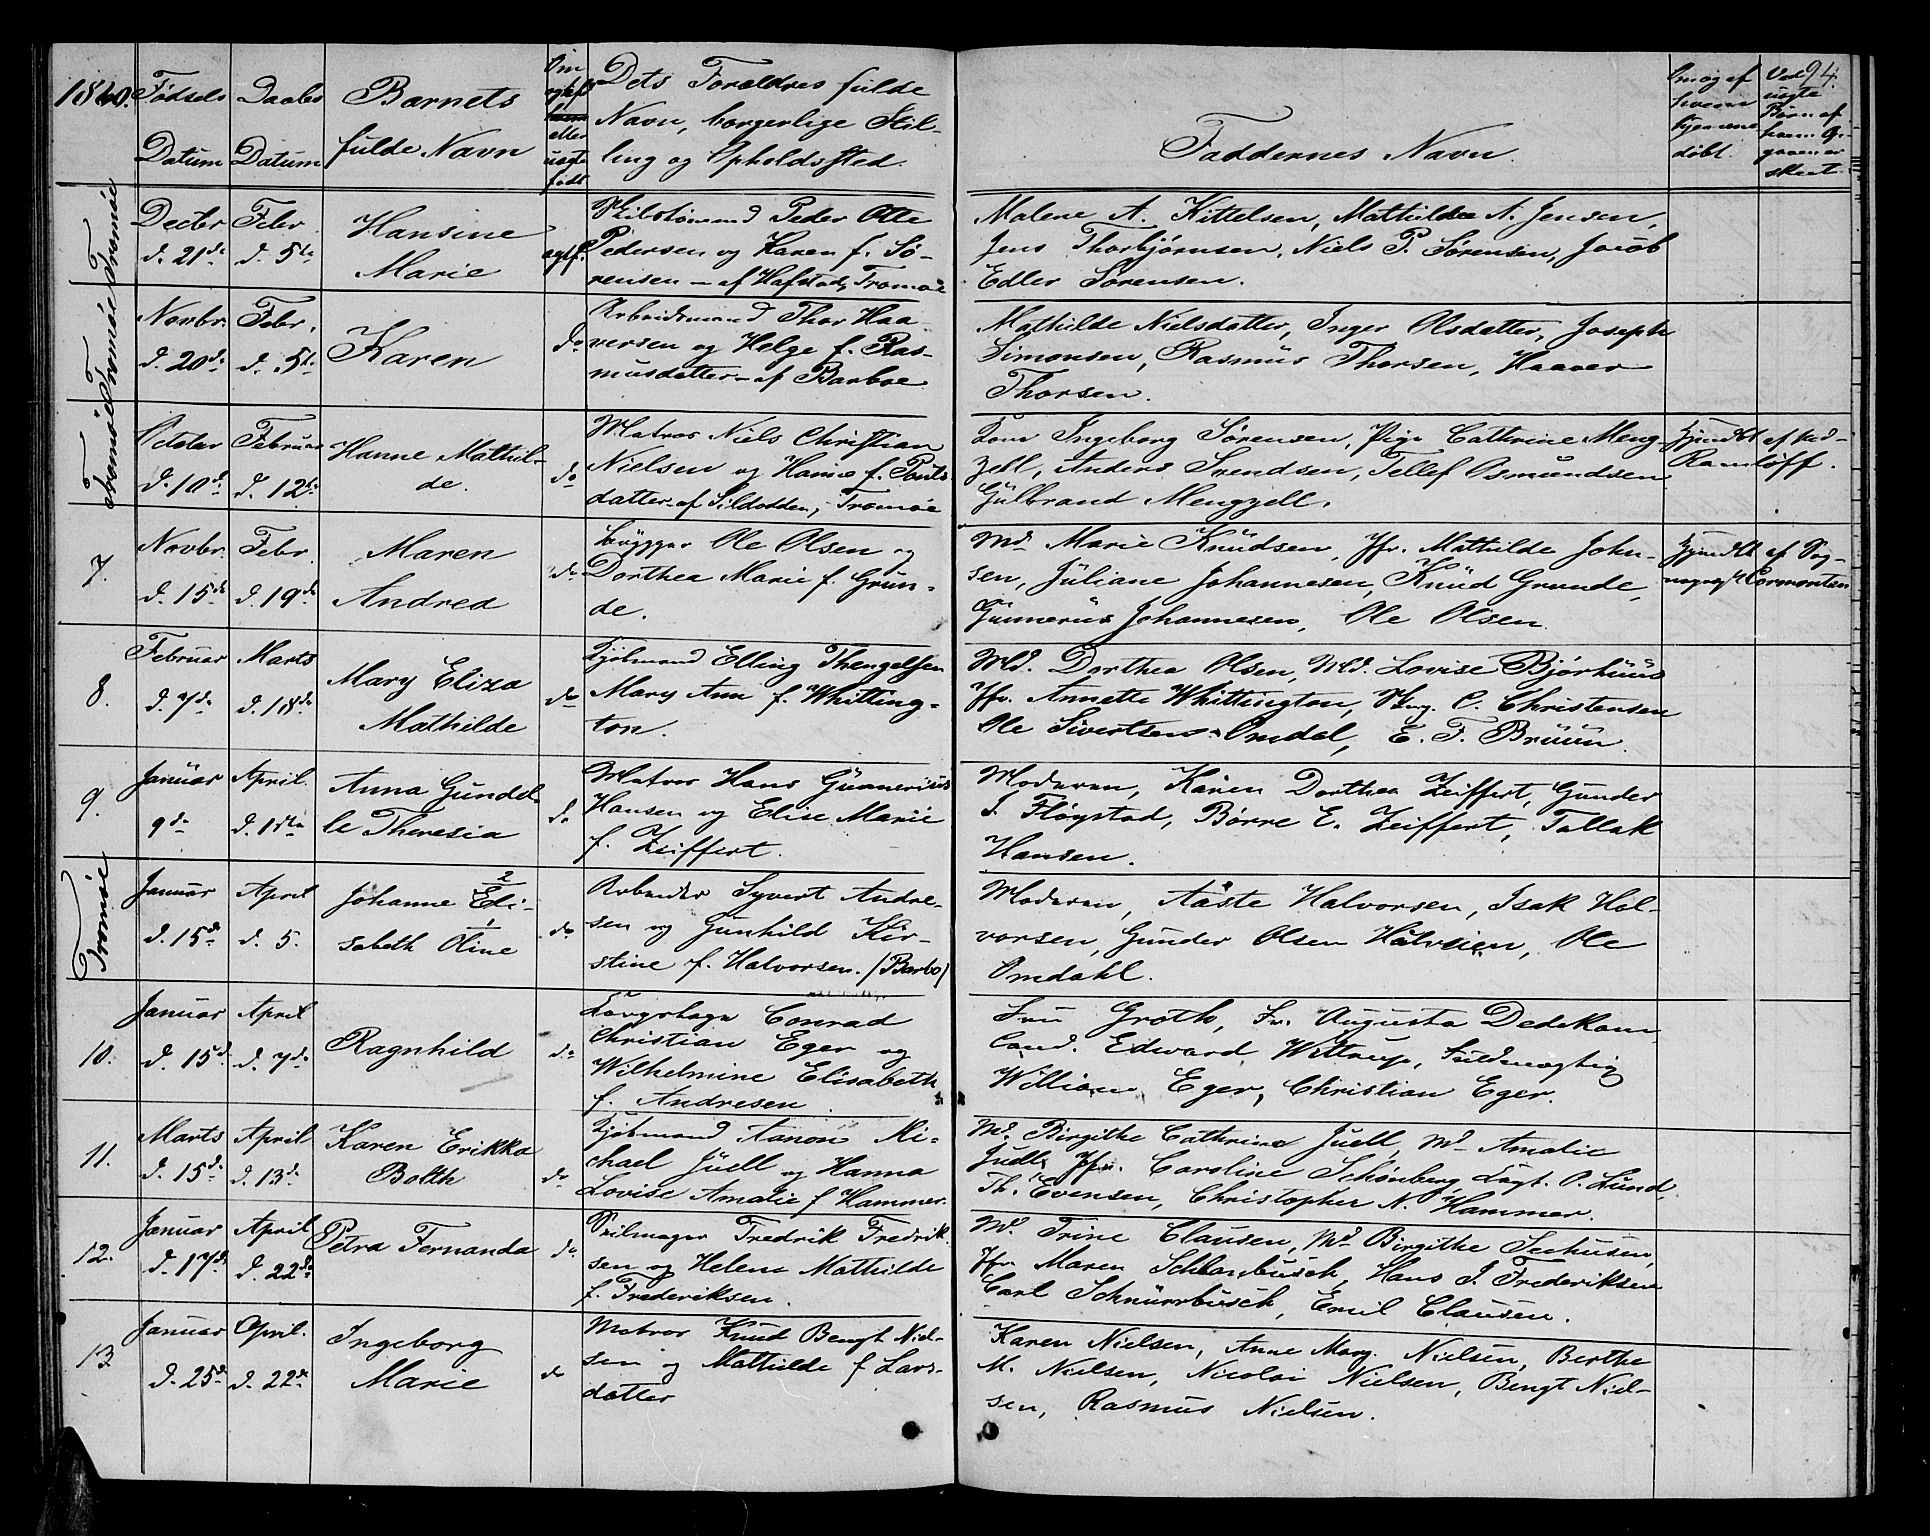 1860. Fødsels Datum
Daabs Datum
Barnets fulde Navn
Om ægtef. eller uægte født
Dets Forældres fulde
Navn, borgerlige Stil-
ling og Opholdssted.
Faddernes Navn.
Om og af hvem hjemmedøbt.
94.
Ved uægte Børn af hvem skeet.
Tromøe
Decbr d. 21de
Febr d. 5te
Hansine
Marie
egtf.
Peder Olle
Pedersen og Karen f. Sø-
rensen - af Hafstad, Tromøe
Malene A. Kittelsen, Mathilde A. Jensen,
Jens Thorbjørnsen, Niels P. Sørensen, Jacob
Edler Sørensen.
Tromøe
Novbr. d. 20de
Febr. d. 5te
Karen
do
Arbeidsmand Thor Haa
versen og Helge f. Ras-
musdatter - af Barboe
Mathilde Nielsdatter, Inger Olsdatter, Joseph
Simonsen, Rasmus Thorsen, Haaver
Thorsen.
Tromøe
Octobr d. 10de
Februar d. 12te
Hanne Mathil-
de.
do
Matros Niels Christian
Nielsen og Hanne f. Ponts
datter - af Sildodden, Tromøe
Kone Ingeborg Sørensen, Pige Cathrine Meng-
zell, Anders Svendsen, Tellef Osmundsen
Gulbrand Mengzell.
Hjemdbt af
Ramløff.
7.
Novbr. d. 15de
Febr. d. 19de
Maren
Andrea
do
Brygger Ole Olsen og
Dorthea Marie f. Grun-
de.
Md. Marie Knudsen, Jfr. Mathilde John-
sen, Juliane Johannesen, Knud Grunde,
Gunnerus Johannesen, Ole Olsen.
Hjemdbt af Sog-
nepræst Cormontan
8.
Februar d. 7de
Marts d. 18de
Mary Eliza
Mathilde
do
Kjøbmand Elling Thengelsen
Mary Ann f. Whitting-
ton.
Md. Dorthea Olsen, Md. Lovise Bjørhuus
Jfr. Annette Whittington, C. Christensen
Ole Sivertsen Omdal, E. F. Bruun.
9.
Januar 9de
April d. 1ste
Anna Gundel-
le Theresia
do
Matros Hans Gunnerius
Hansen og Elise Marie
f. Zeiffert.
Moderen, Karen Dorthea Zeiffert, Gunder
S. Fløystad, Børre E. Zeiffert, Tallak
Hansen.
Tromøe
Januar d. 15de
April d. 5.
Johanne Eli-
sabeth Oline
2
1
do
Arbeider Syvert Andre-
sen og Gunhild Kir-
stine f. Halvorsen. (Barbo)
Moderen, Aaste Halvorsen, Isak Hal-
vorsen, Gunder Olsen Halvsien, Ole
Omdahl.
10.
Januar d. 15de
April d. 7de
Ragnhild
do
Conrad
Christian Eger og
Wilhelmine Elisabeth
f. Andresen.
Fru Groth, Fr. Augusta Dedekam
Cand. Edward Wittrup, Fuldmægtig
William Eger, Christian Eger.
11.
Marts d. 15de
April d. 13de
Karen Erikka
Bolth
do
Kjøbmand Aanon Mi-
chael Juell og Hanna
Lovise Amalie f Hammer.
Md. Birgithe Cathrine Juell, Md Amalie
Juell, Jfr. Caroline Schønberg, Capt. O. Lund,
Th. Evensen, Christopher N. Hammer.
12.
Januar d. 17de
April d. 22de
Petra Fernanda
do
Seilmager Fredrik Fredrik
sen og Helene Mathilde
f. Frederiksen.
Md. Trine Clausen, Md Birgithe Seehusen,
Jfr. Maren Schlanbusch, Hans J. Frederiksen
Carl Schnurrbusch, Emil Clausen.
13
Januar d. 25de
April. d. 22de
Ingeborg
Marie
do
Matros Knud Bengt Niel-
sen og Mathilde f Lars-
datter
Karen Nielsen, Anne Marg. Nielsen, Berthe
M. Nielsen, Nicolai Nielsen, Bengt Niel-
sen, Rasmus Nielsen.